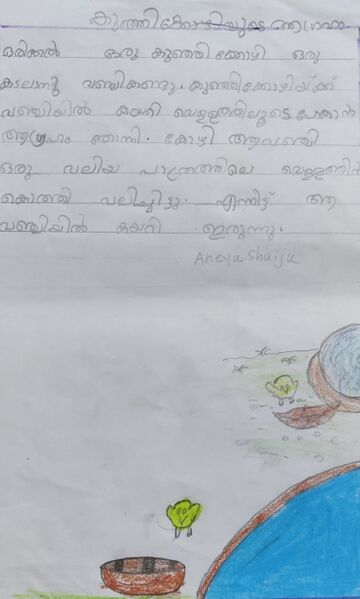 കുഞ്ഞിക്കോഴിയുടെ ആഗ്രഹം
ഒരിക്കൽ ഒരു കുഞ്ഞി കോഴി ഒരു
കടലാസു വഞ്ചികണ്ടു. കുഞ്ഞിക്കോഴിയ്ക്ക്
വഞ്ചിയിൽ കയറി വെള്ളത്തിലൂടെ പോകാൻ
ആഗ്രഹം തോന്നി. കോഴി ആവഞ്ചി
ഒരു വലിയ പാത്രത്തിലെ വെള്ളത്തിൽ
കൊത്തി വലിച്ചിട്ടു. എന്നിട്ട് ആ
വഞ്ചിയിൽ കയറി ഇരുന്നു.
Aneya Shaiju